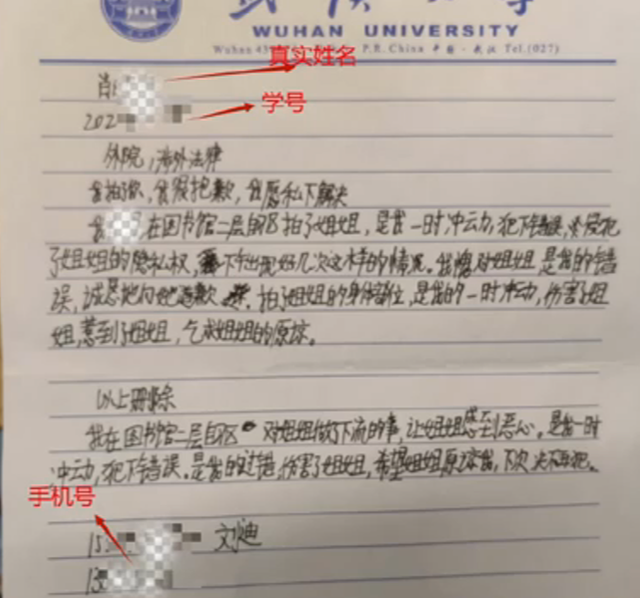 WUHAN UNIVERSITY
P.R.China 中国·武汉 Tel.(027)
真实姓名
肖
202
学号
外院,涉外法律
我拍了你,我很抱歉,我愿私下解决
我 在图书馆二层自区拍了姐姐,是我一时冲动,犯下错误,侵犯
了姐姐的隐私权,下午出现好几次这样的情况。我愧对姐姐,是我的错
误,诚恳地向她道歉 拍了姐姐的身体部位,是我的一时冲动,伤害了姐
姐,惹到了姐姐,乞求姐姐的原谅。
以上删除
我在图书馆二层自区 对姐姐做了下流的事,让姐姐感到恶心。是我一时
冲动,犯下错误。是我的过错,伤害了姐姐,希望姐姐原谅我,下次决不再犯。
手机号
15
13